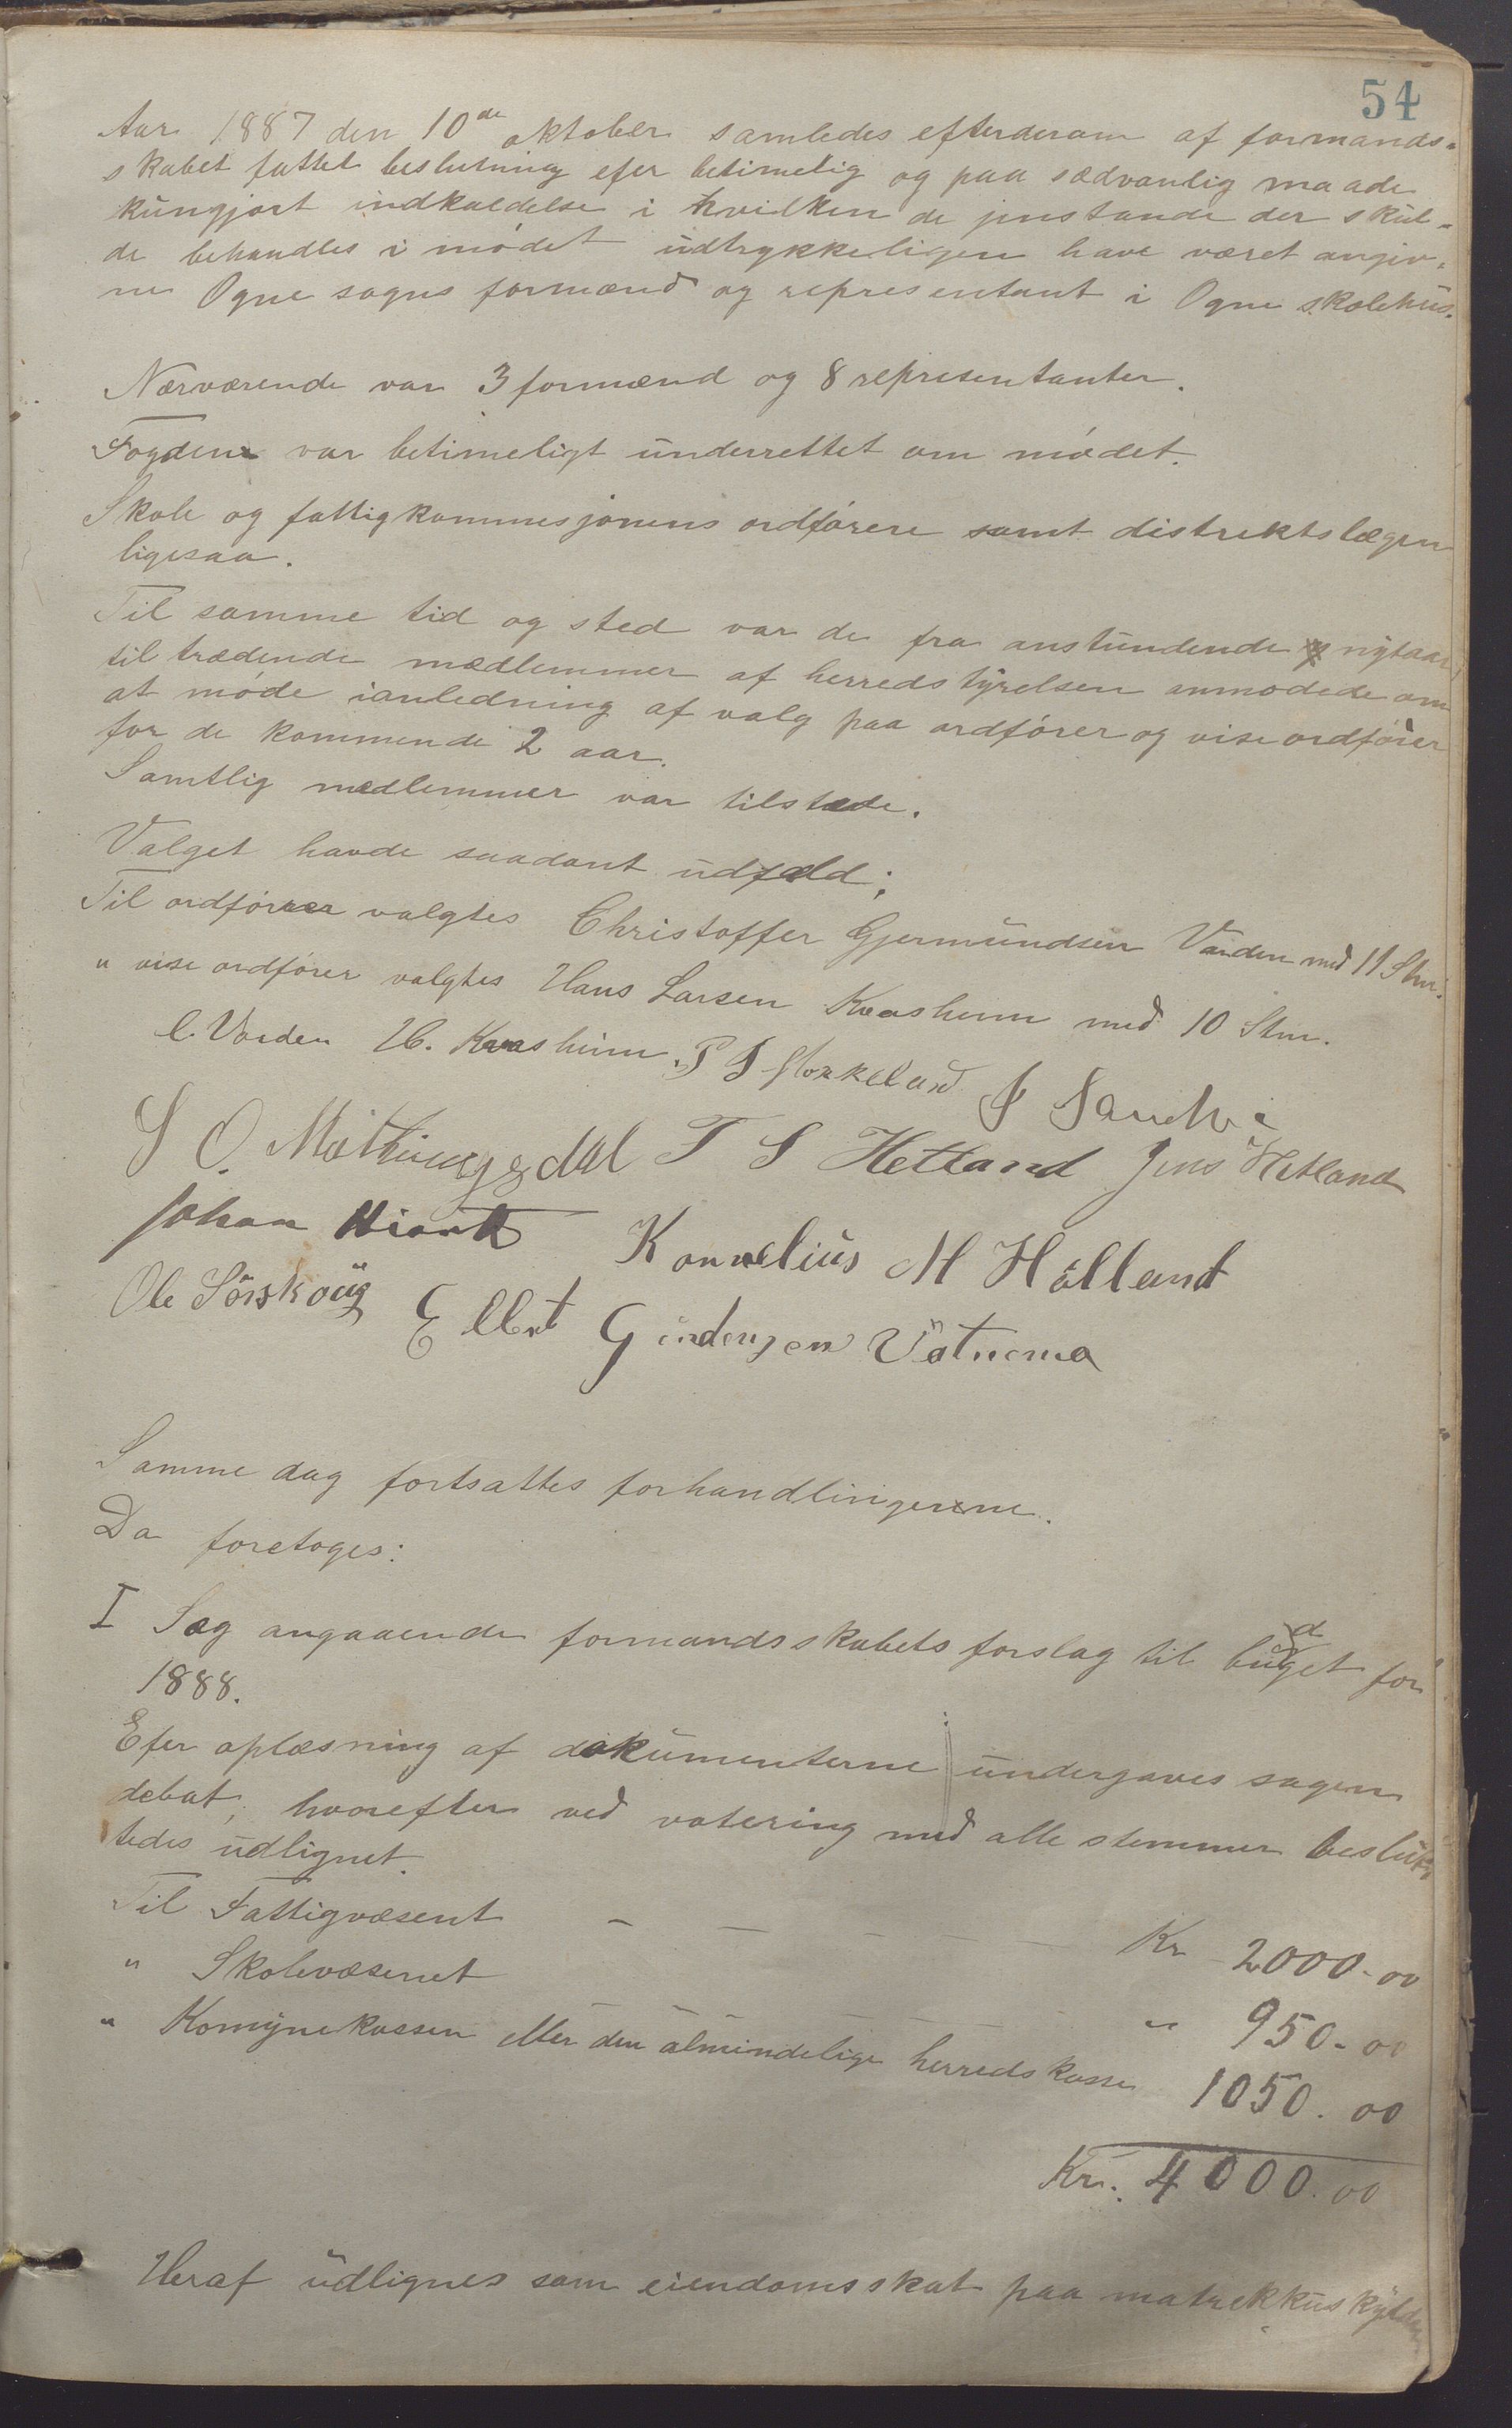 54
Aar 1887 den 10de oktober samledes efterderom af formands-
skabet fattet beslutning efer betimelig og paa sædvanlig maade
kungjort indkaldelse i hvilken de jenstande der skul-
de behandles i mødet udtrykkeligen have været angiv-
ne Ogne sogns formænd og representant i Ogne skolehus.
Nærværende var 3 formænd og 8 representanter.
Fogden var betimeligt underrettet om mødet.
Skole og fattigkommesjonens ordførere samt distriktslægen
ligesaa.
Til samme tid og sted var de fra anstundende nytaar
tiltrædende medlemmer af herredstyrelsen anmodede om
at møde ianledning af valg paa ordfører og viseordfører
for de kommende 2 aar.
Samtlig medlemmer var tilstede.
Valget havde saadant udfald;
Til ordfører valgtes Christoffer Gjermundsen Varden med 11 Stm.
" vise ordfører valgtes Hans Larsen Kvasheim med 10 Stm.
C. Varden H. Kvasheim. P T Storkeland
S O. Mathingsdal T S Hetland Jens Hetland
Johan
Kornelius M Hålland
Ole Sörskoug Ellert
Samme dag fortsattes forhandlingerne.
Da foretoges:
I Sag angaaende formandsskabets forslag til budget for
1888.
Efer oplæsning af dokumenterne undergaves sagen
debat, hvorefter ved votering med alle stemmer beslut-
tedes udlignet.
Til Fattigvæsent - - - - - Kr 2000-00
" Skolevæsenet - - - - - " 950-00
" Komynekassen eller den almindelige herredskasse 1050.00
Kr. 4000.00
Heraf udlignes som eiendomsskat paa matrekkuskylden